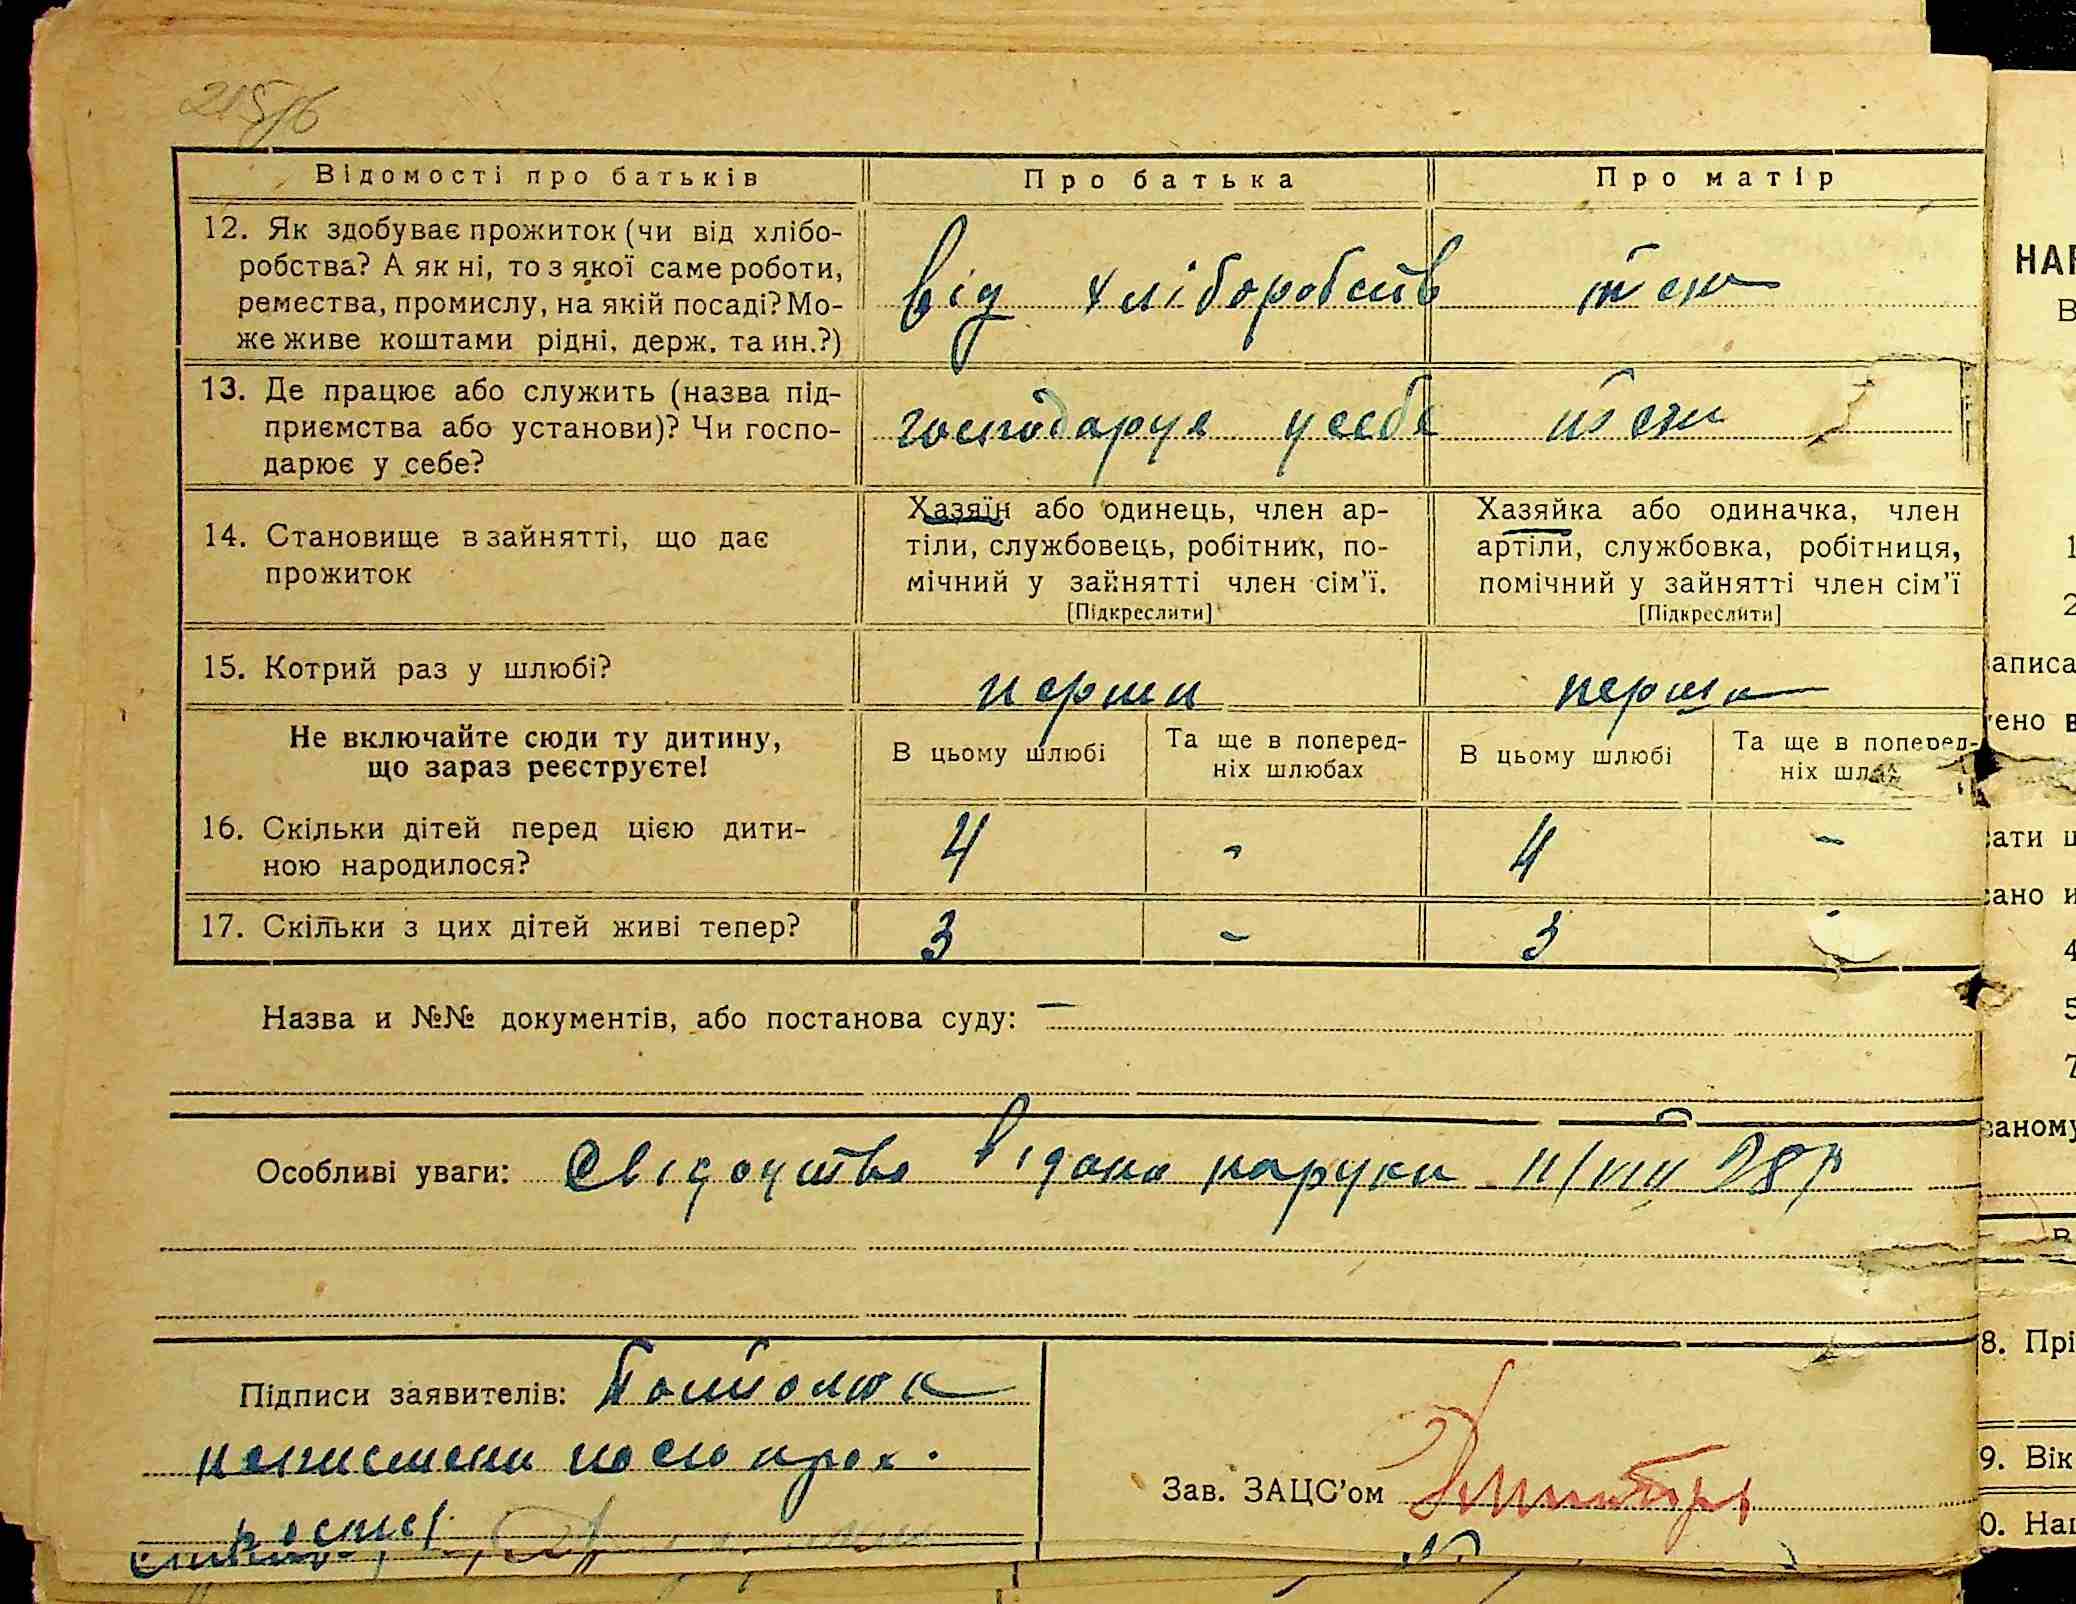 215/6
Відомості про батьків Про батька Про матір
12. Як здобуває прожиток (чи від хлібо-
робства? А як ні, то з якої саме роботи,
ремества, промислу, на якій посаді? Мо-
же живе коштами рідні, держ. та ин.?)
від хліборобств теж
13. Де працює або служить (назва під-
приємства або установи)? Чи госпо-
дарює у себе?
господарує у себе теж
14. Становище в зайнятті, що дає
прожиток
Хазяїн або одинець, член ар-
тіли, службовець, робітник, по-
мічний у зайнятті член сім'ї.
[Підкреслити]
Хазяйка або одиначка, член
артіли, службовка, робітниця,
помічний у зайнятті член сім'ї
[Підкреслити]
15. Котрий раз у шлюбі? перши перши
Не включайте сюди ту дитину,
що зараз реєструєте!
В цьому шлюбі
Та ще в поперед-
ніх шлюбах
В цьому шлюбі
Та ще в поперед-
ніх шл
16. Скільки дітей перед цією дити-
ною народилося?
4 - 4 -
17. Скільки з цих дітей живі тепер? 3 - 3 -
Назва и №№ документів, або постанова суду: —
Особливі уваги: Свідоцтво відано наруки 11/VIII 28 р
Підписи заявителів:
неписмени по его
Зав. ЗАЦС'ом
НАР
В
1
2
аписа
ено в
ати ш
ано и
4
5
7
ваному
В
8. Прі
9. Вік
0. Нац